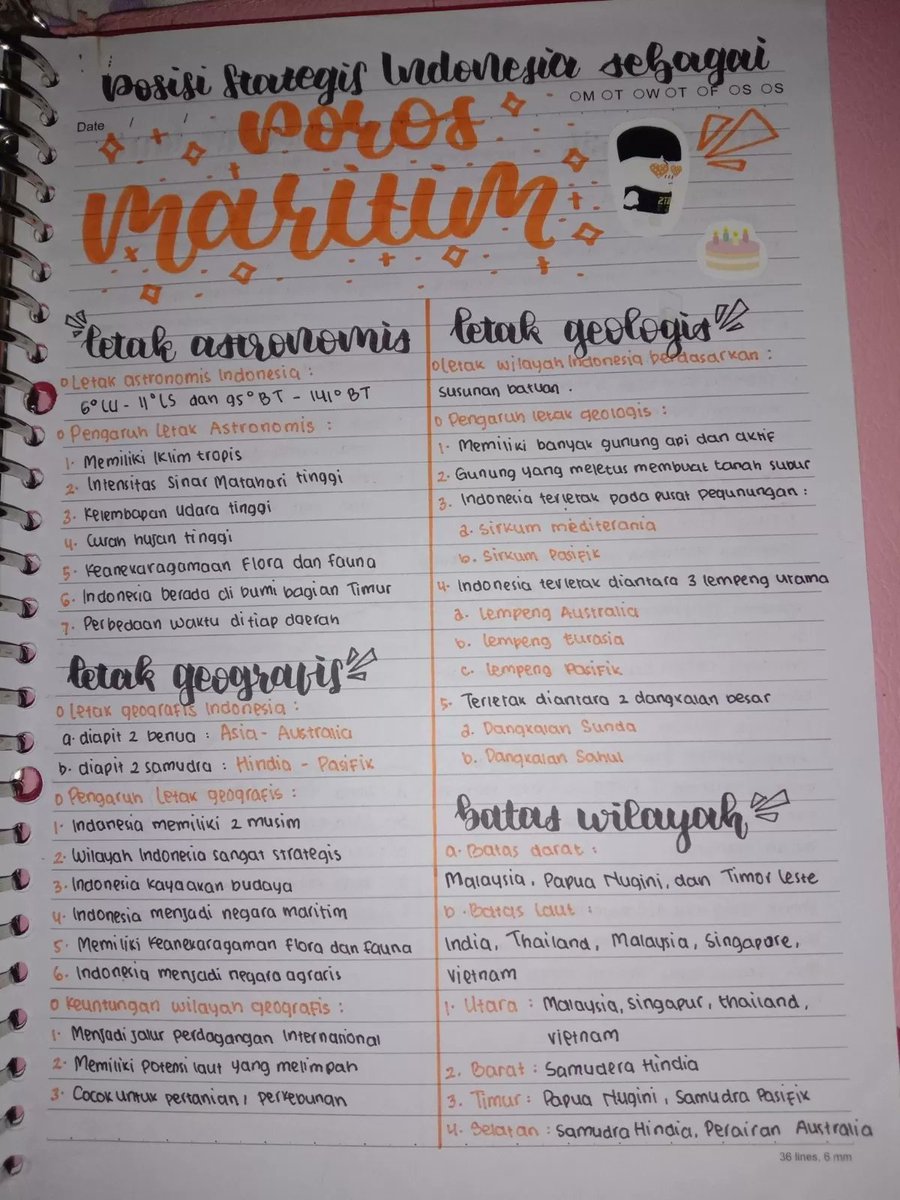 Posisi Strategis Indonesia sebagai
OM OT OW OT OF OS OS
Date / /
Poros
maritim
letak astronomis
o Letak astronomis Indonesia :
6° LU - 11° LS dan 95° BT - 141° BT
o Pengaruh Letak Astronomis :
1. Memiliki Iklim tropis
2. Intensitas Sinar Matahari tinggi
3. Kelembapan Udara tinggi
4. Curah hujan tinggi
5. Keanekaragamaan Flora dan fauna
6. Indonesia berada di bumi bagian Timur
7. Perbedaan waktu ditiap daerah
letak geografis
o Letak geografis Indonesia :
a. diapit 2 benua : Asia - Australia
b. diapit 2 samudra : Hindia - Pasifik
o Pengaruh Letak geografis :
1. Indonesia memiliki 2 musim
2. Wilayah Indonesia sangat strategis
3. Indonesia kaya akan budaya
4. Indonesia menjadi negara maritim
5. Memiliki keanekaragaman flora dan fauna
6. Indonesia menjadi negara agraris
o Keuntungan wilayah geografis :
1. Menjadi jalur perdagangan Internasional
2. Memiliki Potensi laut yang melimpah
3. Cocok untuk pertanian, perkebunan
letak geologis
o Letak wilayah Indonesia berdasarkan :
susunan batuan .
o Pengaruh letak geologis :
1. Memiliki banyak gunung api dan aktif
2. Gunung yang meletus membuat tanah subur
3. Indonesia terletak pada pusat pegunungan :
a. Sirkum mediterania
b. Sirkum Pasifik
4. Indonesia terletak diantara 3 lempeng utama
a. Lempeng Australia
b. Lempeng Eurasia
c. Lempeng Pasifik
5. Terletak diantara 2 dangkalan besar
a. Dangkalan Sunda
b. Dangkalan Sahul
batas wilayah
a. Batas darat :
Malaysia, Papua Nugini, dan Timor Leste
b. Batas Laut :
India, Thailand, Malaysia, Singapore,
Vietnam
1. Utara : Malaysia, Singapur, thailand,
vietnam
2. Barat : Samudera Hindia
3. Timur : Papua Nugini, Samudra Pasifik
4. Selatan : Samudra Hindia, Perairan Australia
36 lines, 6 mm